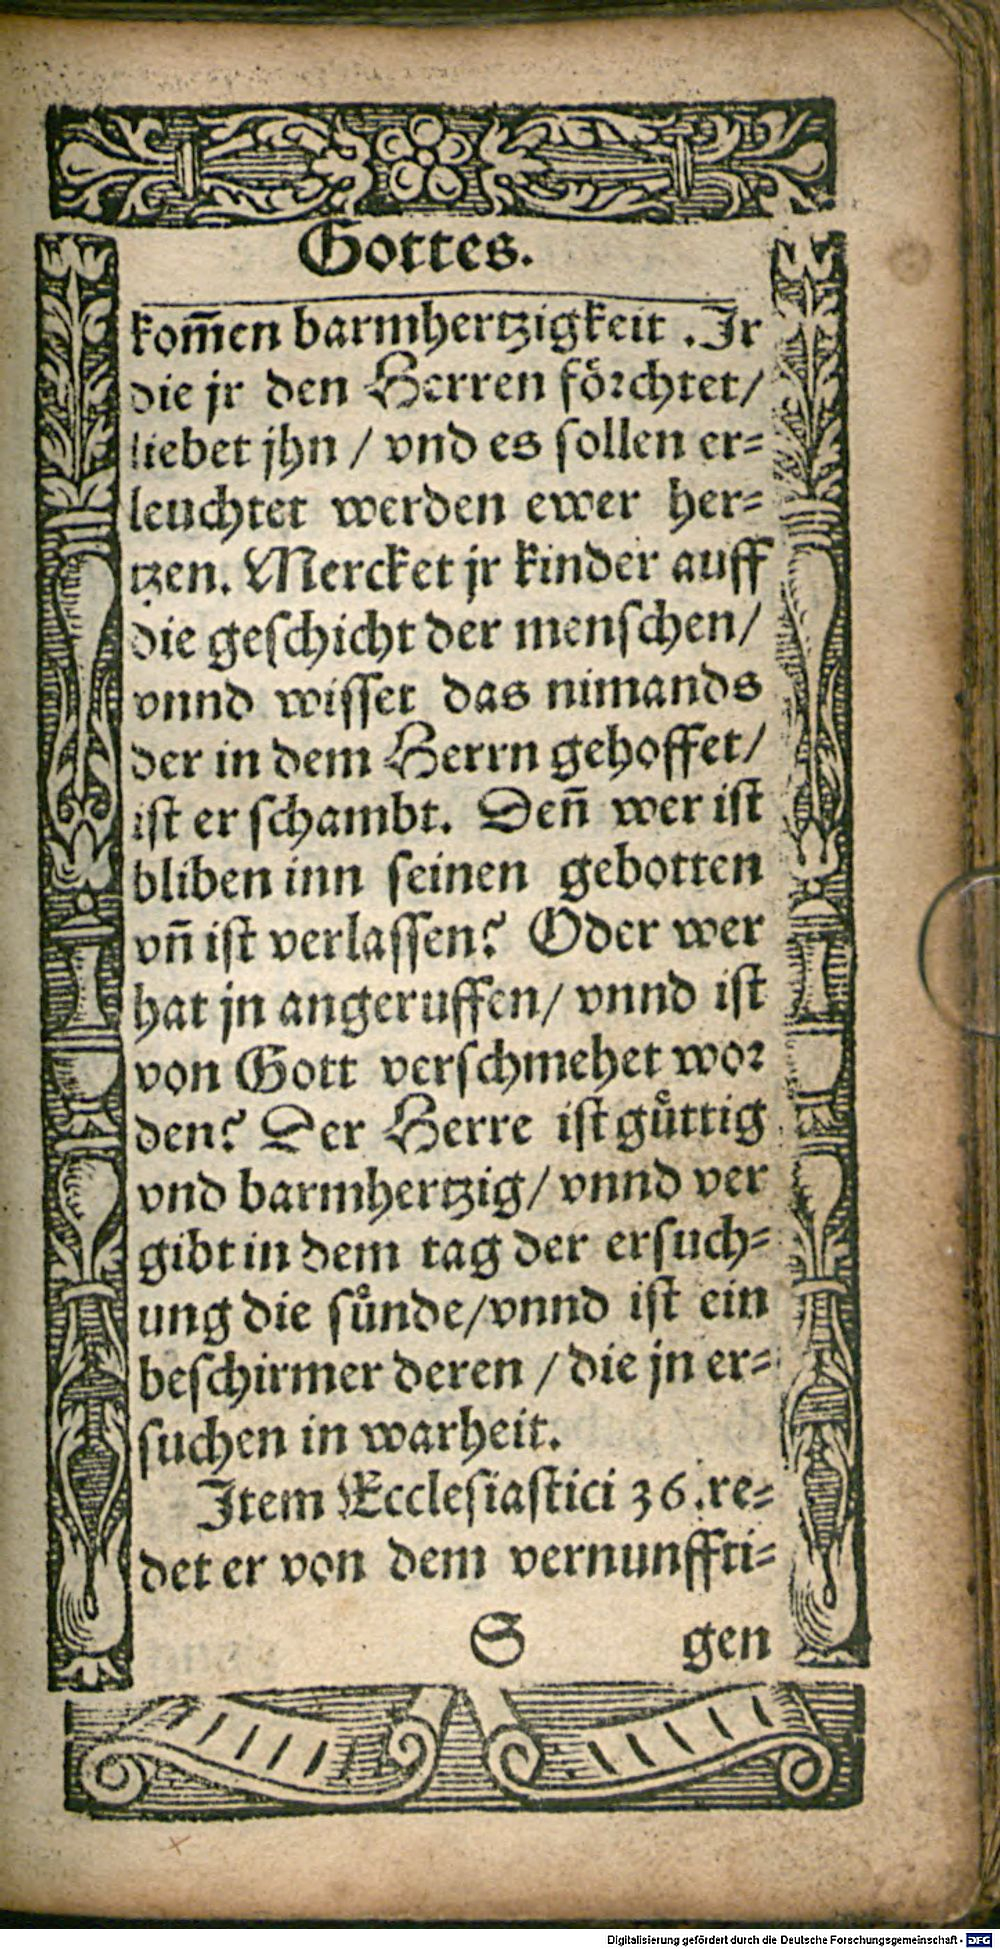 Gottes.
kom̃en barmhertzigkeit . Jr
die jr den Herren förchtet/
liebet jhn / vnd es sollen er-
leuchtet werden ewer her-
tzen. Mercket jr kinder auff
die geschicht der menschen/
vnnd wisset das nimands
der in dem Herrn gehoffet/
ist er schambt. Deñ wer ist
bliben inn seinen gebotten
vñ ist verlassen? Oder wer
hat jn angeruffen/ vnnd ist
von Gott verschmehet wor
den? Der Herre ist guͤttig
vnd barmhertzig/ vnnd ver
gibt in dem tag der ersuch-
ung die suͤnde/vnnd ist ein
beschirmer deren / die jn er-
suchen in warheit.
Item Ecclesiastici 36. re-
det er von dem vernunffti-
S gen
Digitalisierung gefördert durch die Deutsche Forschungsgemeinschaft - DFG